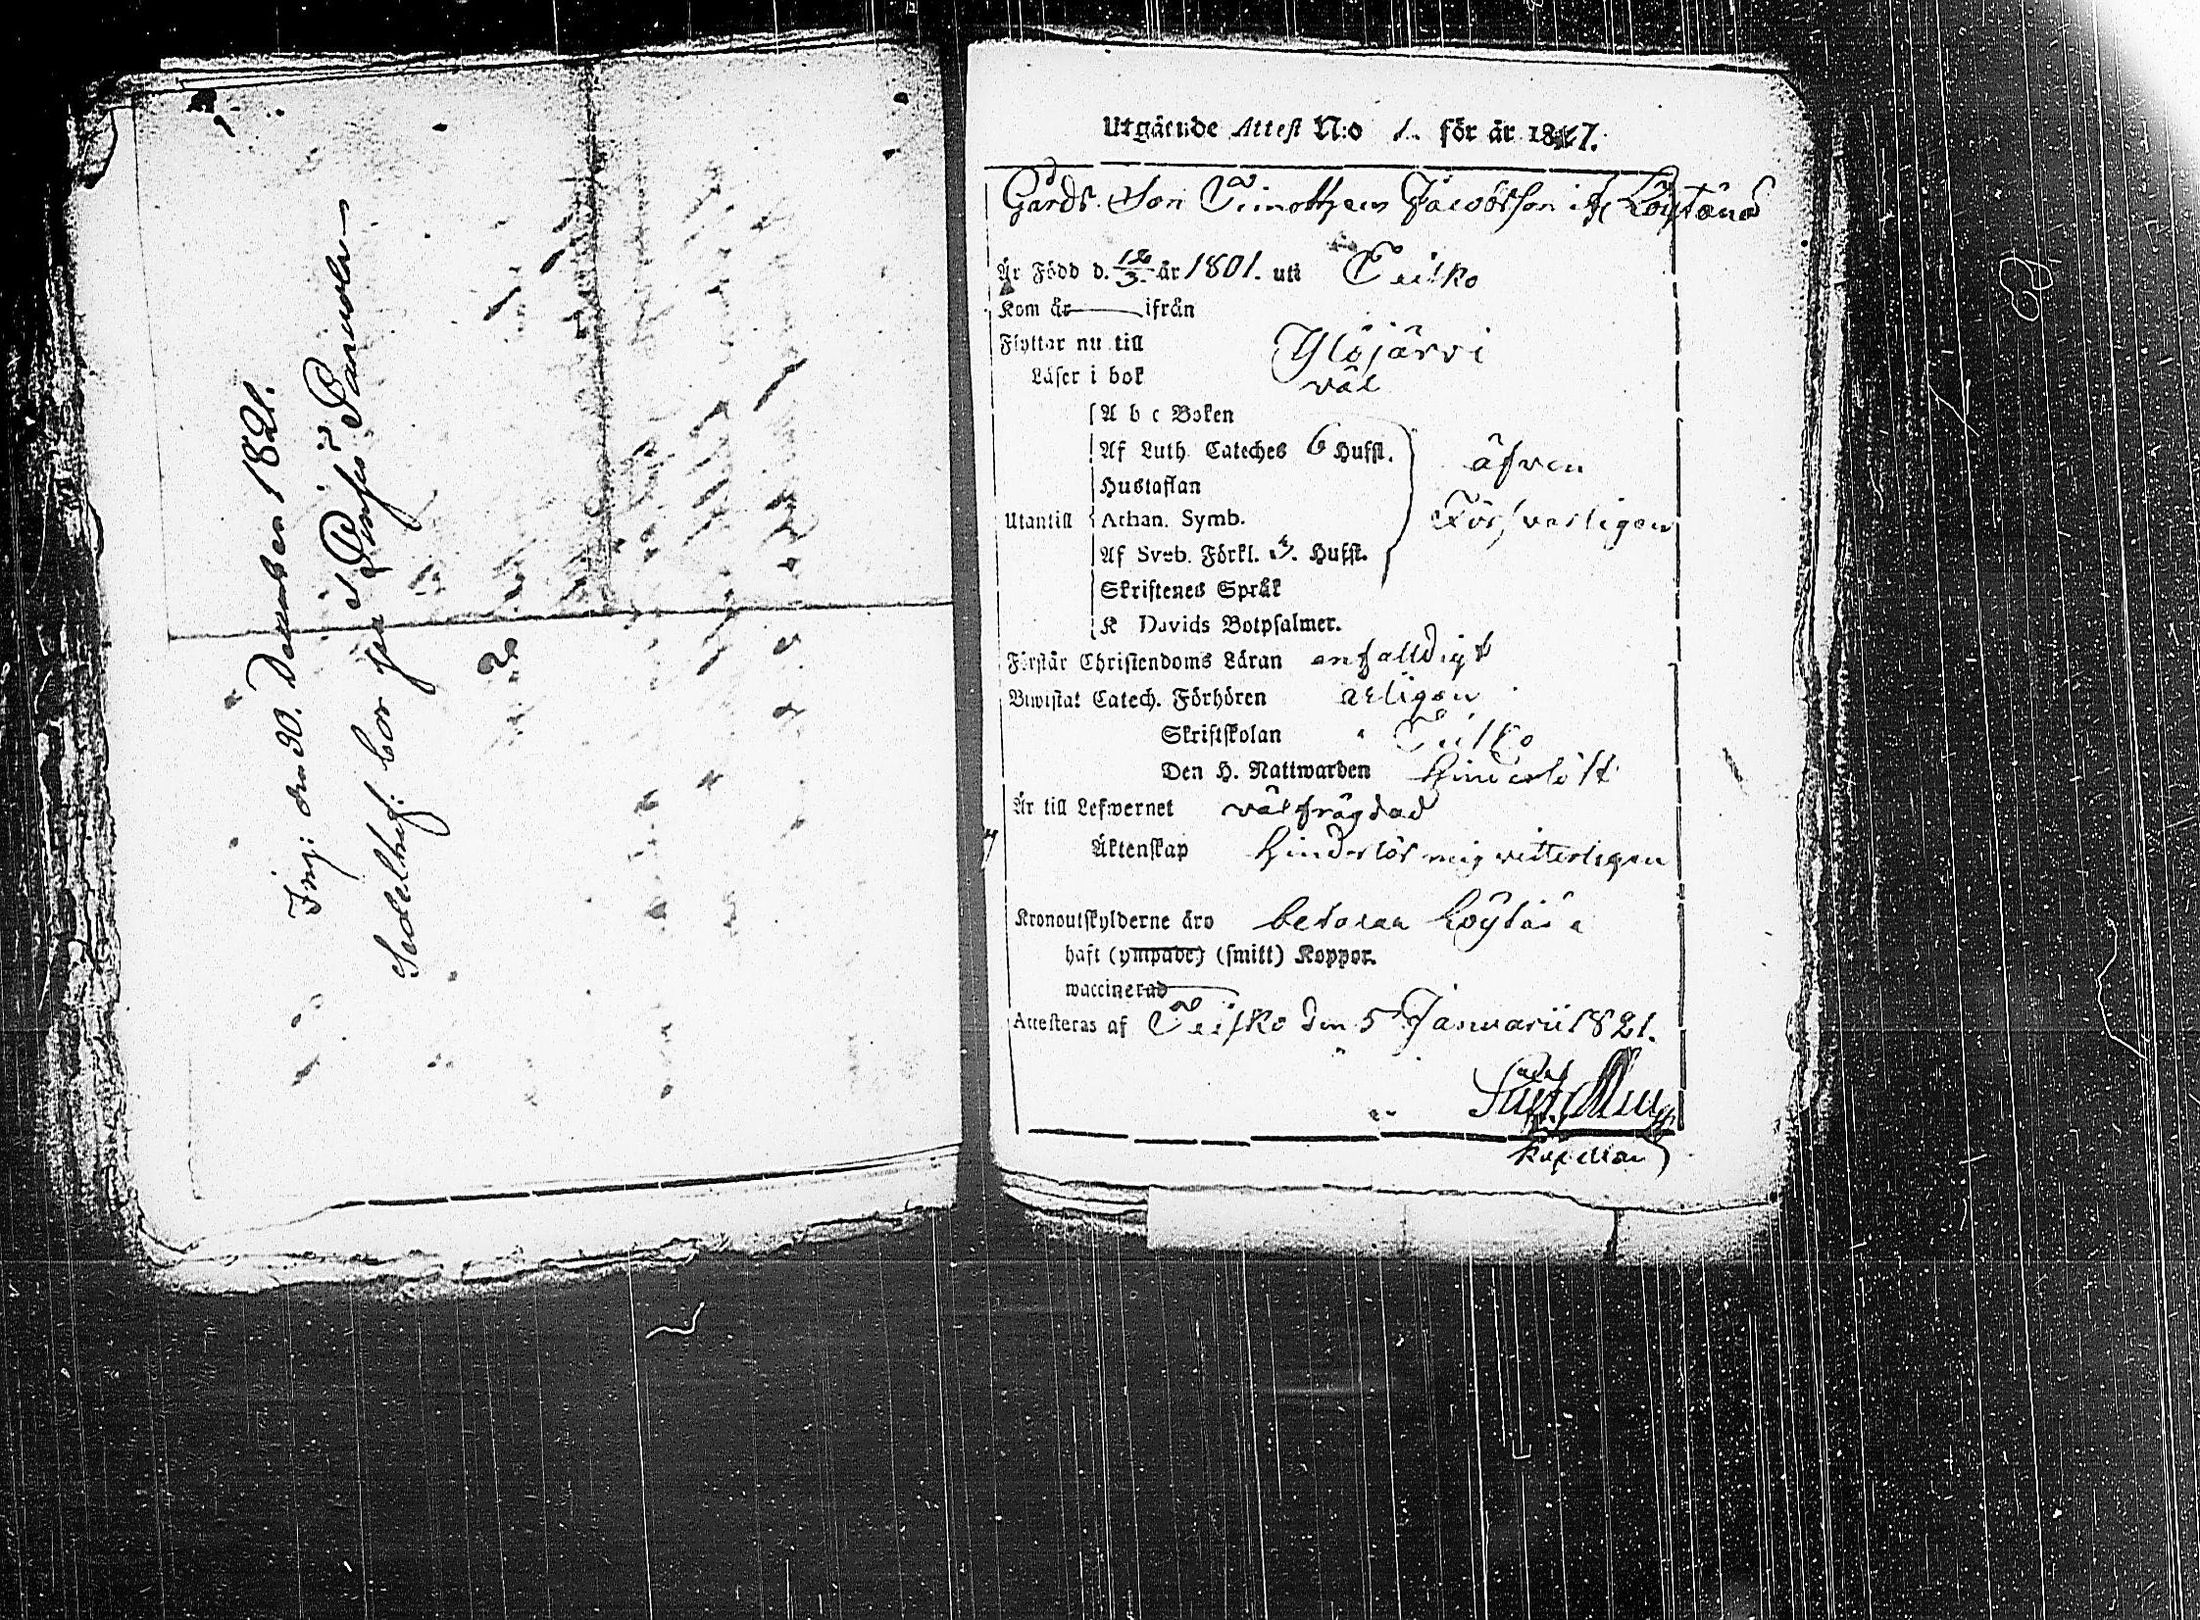 Ing: den 30. December 1821.
bor på
2
Utgående Attest N:o 1. för år 18 7.
Gårds Son Timotheus Jacobsson if Löytänä
Är Född d. 12/3. år 1801. uti Teisko
Kom år ifrån
Flyttar nu till Ylöjärvi
Läser i bok väl
A b c Boken
Af Luth Cateches 6 Hufst. äfven
Hustaflan
Utantill Athan. Symb. Försvarligen
Af Sveb. Förkl. 3. Hufst.
Skriftenes Språk
K Davids Botpsalmer.
Förstår Christendoms Läran enfalldigt
Biwistat Catech. Förhören årligen
Skriftskolan Teisko
Den H. Nattwarden hinderlöst
Är till Lefwernet välfrägdad
Äktenskap hinderlös mig vitterligen
Kronoutskylderne äro betalda Löytänä
haft (ympade) (smitt) Koppor.
waccinerad
Attesteras af Teisko den 5 Januarii 1821.
Kapellan